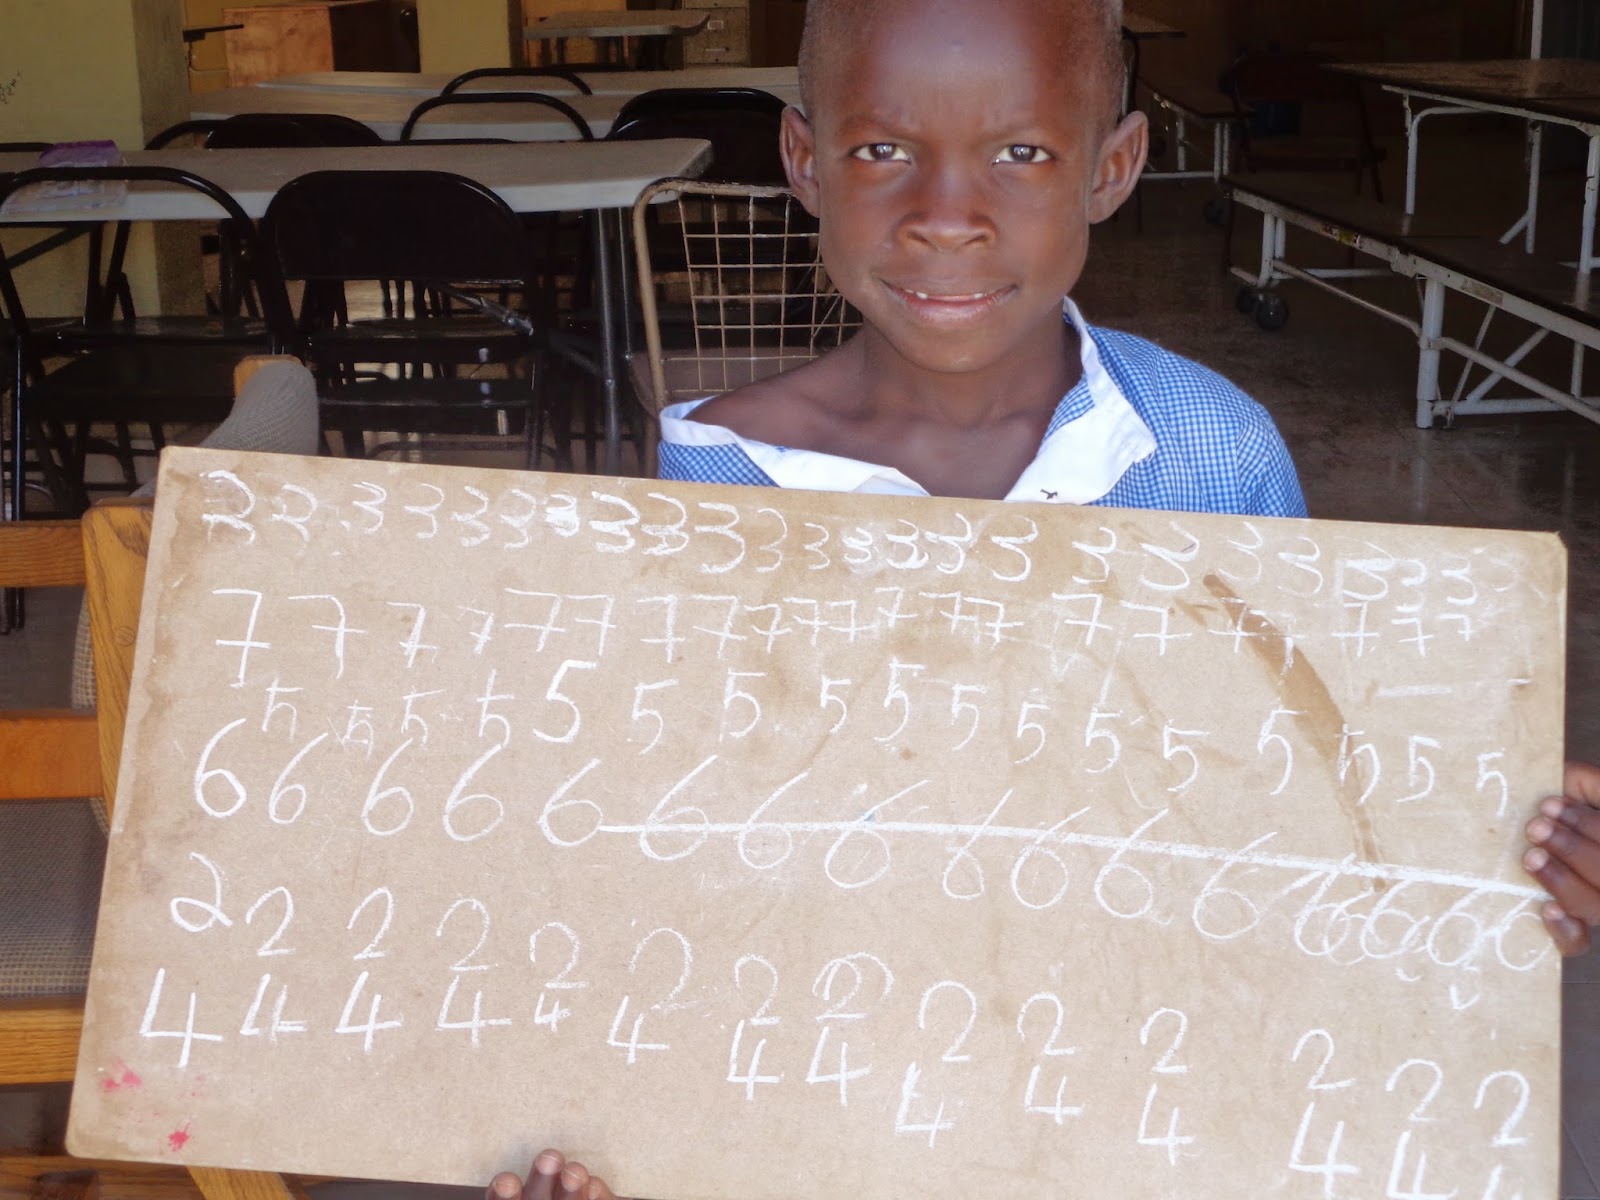 3 3 3 3 3 3 3 3 3 3 3 3 3 3 3 3 3 3 3 3 3 3 3
7 7 7 7 7 7 7 7 7 7 7 7 7 7 7 7 7 7 7 7 7
5 5 5 5 5 5 5 5 5 5 5 5 5 5 5 5 5
6 6 6 6 6 6 6 6 6 6 6 6 6 6 6 6 6
2 2 2 2 2 2 2 2 2 2 2 2 2 2
4 4 4 4 4 4 4 4 4 4 4 4 4 4